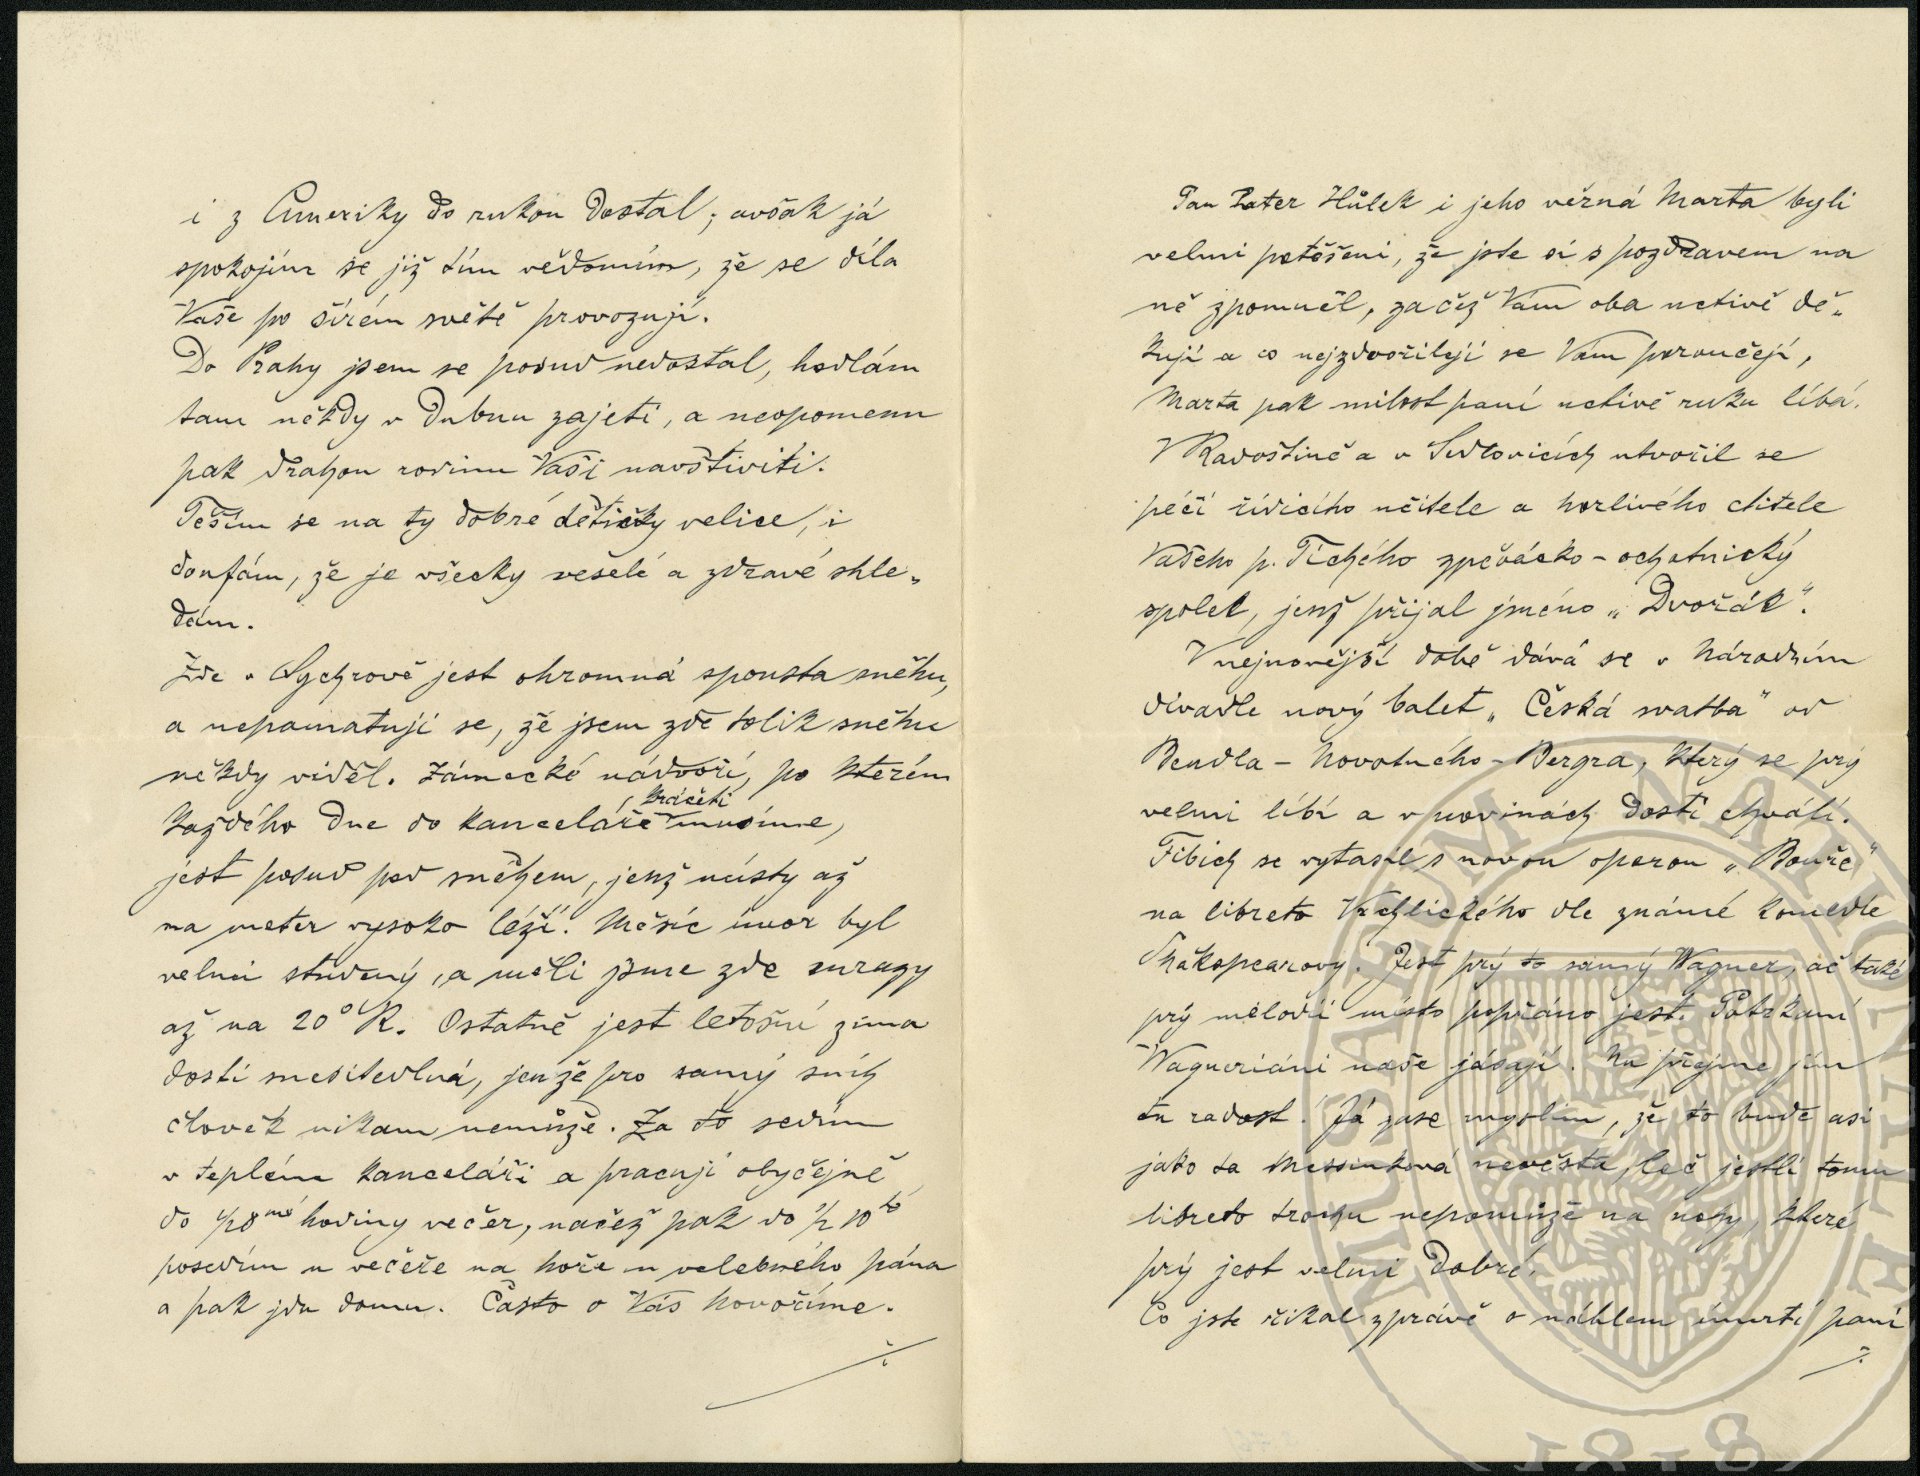 i z Ameriky do rukou dostal; avšak já
spokojím se již tím vědomím, že se díla
Vaše po šírém světě provozují.
Do Prahy jsem se posud nedostal, hodlám
tam někdy v Dubnu zajeti, a neopomenu
pak drahou rodinu Vaši navštíviti.
Těším se na ty dobré dětičky velice, i
doufám, že je všecky veselé a zdravé shle„
dám.
Zde v Sychrově jest ohromná spousta sněhu,
a nepamatuji se, že jsem zde tolik sněhu
někdy viděl. Zámecké nádvoří, po kterém
každého dne do kanceláře kráčeti musíme,
jest posud pod sněhem, jenž místy až
na meter vysoko léží. Měsíc únor byl
velmi studený, a měli jsme zde mrazy
až na 20° R. Ostatně jest letošní zima
dosti snesitedlná, jenže pro samý sníh
člověk nikam nemůže. Za to sedím
v teplém kanceláři a pracuji obyčejně
do 1/2 8mé hodiny večer, načež pak do 1/2 10té
posedím u večeře na hoře u velebného pána
a pak jdu domu. Často o Vás hovoříme.
./.
Pan Pater Hůlek i jeho věrná Marta byli
velmi potěšeni, že jste si s pozdravem na
ně zpomněl, začež Vám oba uctivě dě„
kují a co nejzdvořileji se Vám poroučejí,
Marta pak milost paní uctivě ruku líbá.
V Radostině a v Sedlovicích utvořil se
péčí řídicího učitele a horlivého ctitele
Vašeho p. Tichého zpěvácko-ochotnický
spolek, jenž přijal jméno „Dvořák“.
V nejnovější době dává se v Národním
divadle nový balet „Česká svatba“ od
Bendla – Novotného – Bergra, který se prý
velmi líbí a v novinách dosti chválí.
Fibich se vytasil s novou operou „Bouře“
na libreto Vrchlického dle známé komedie
Shakspearovy. Jest prý to samý Wagner, ač také
prý melodii místo popřáno jest. Potrhaní
Wagneriáni naše jásají. Nu přejme jim
tu radost! Já zase myslím, že to bude asi
jako ta Messinková nevěsta, leč jestli tomu
libreto trochu nepomůže na nohy, které
prý jest velmi dobré.
Co jste říkal zprávě o náhlem úmrtí paní
./.
MUSAEUM NATIONALE
1818